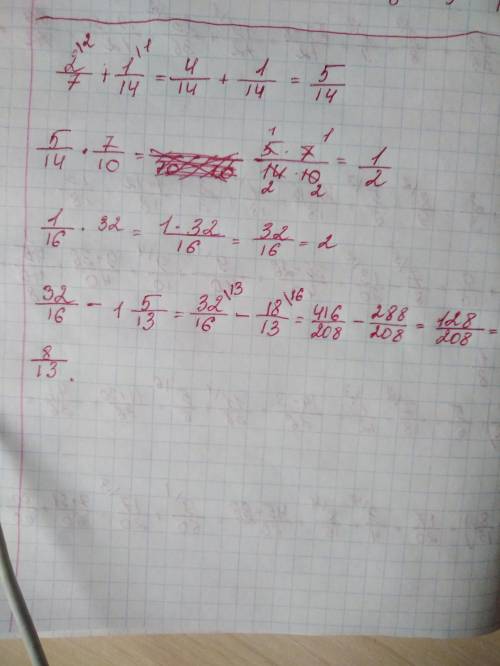 2\2/7 + 1\1/14 = 4/14 + 1/14 = 5/14
5/14 · 7/10 = 5 · 7/14 · 10 = 1/2
1/16 · 32 = 1 · 32/16 = 32/16 = 2
32/16 - 1 5/13 = 32\13/16 - 18\16/13 = 416/208 - 288/208 = 128/208 =
8/13.